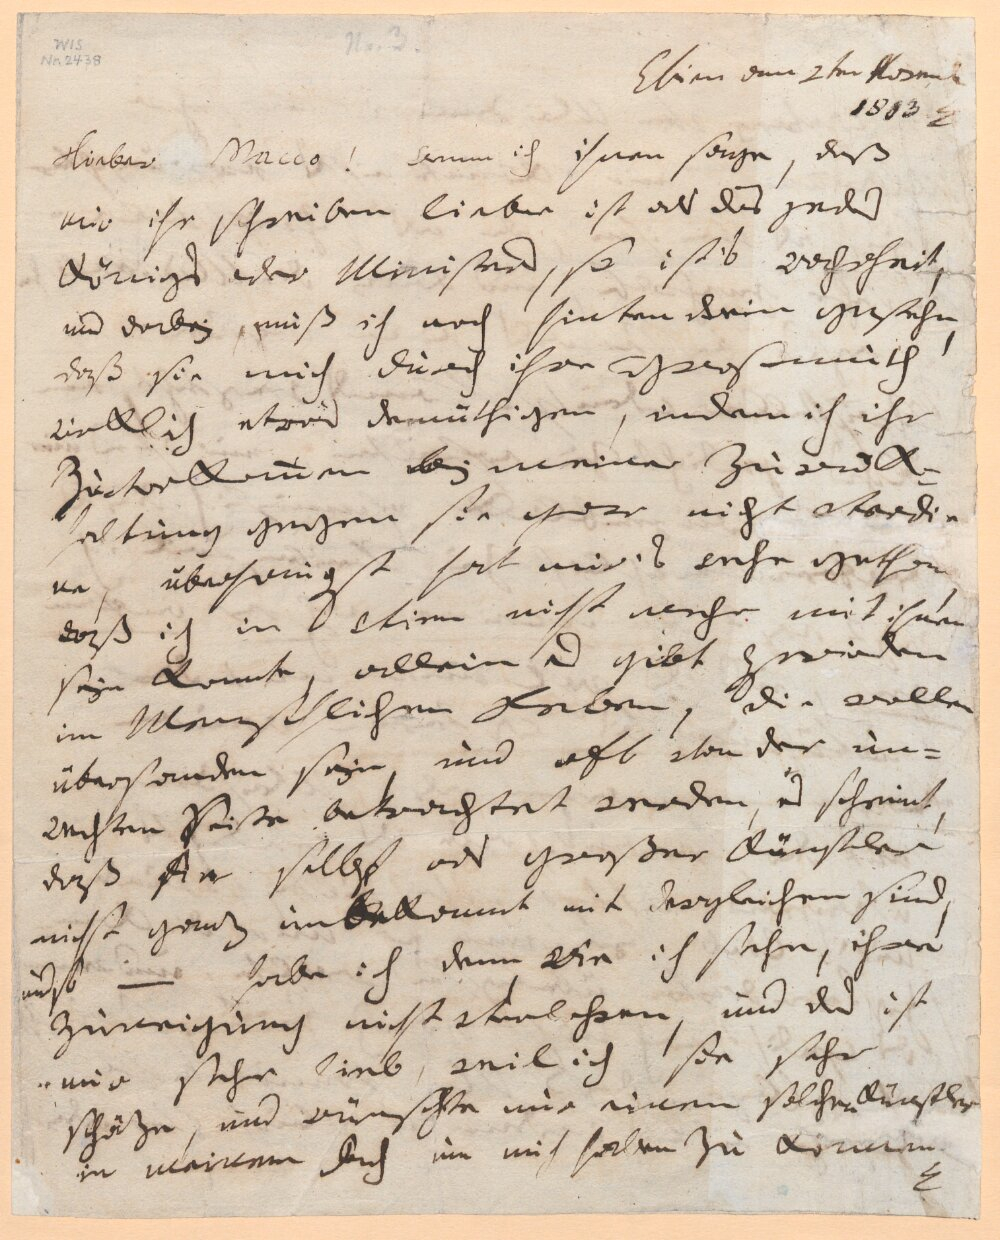 WIS
No. 2438
No. 3.
Wien am 2ten Novemb.
1803
Lieber Macco! wenn ich ihnen sage, daß
mir ihr schreiben lieber ist als das jedes
Königs oder Ministers, so ist's wahrheit,
und dabey muß ich noch hintendrein gestehn,
daß sie mich durch ihre Großmuth
wirklich etwas demüthigen, indem ich ihr
Zuvorkommen bey meiner Zurück-
haltung gegen sie gar nicht verdie
ne, überhaupt hat mir's wehe gethan,
daß ich in Wien nicht mehr mit ihnen
seyn konnte, allein es gibt Perioden
im Menschlichen Leben, die wollen
überstanden seyn, und oft von der un=
rechten Seite betrachtet werden, es scheint,
daß sie selbst als großer Künstler
nicht ganz unbekannt mit dergleichen sind,
und so — habe ich denn wie ich sehe, ihre
Zuneigung nicht verlohren, und das ist
mir sehr lieb, weil ich sie sehr
schäze, und wünschte nur einen solchen Künstler
in meinem Fach um mich haben zu können.